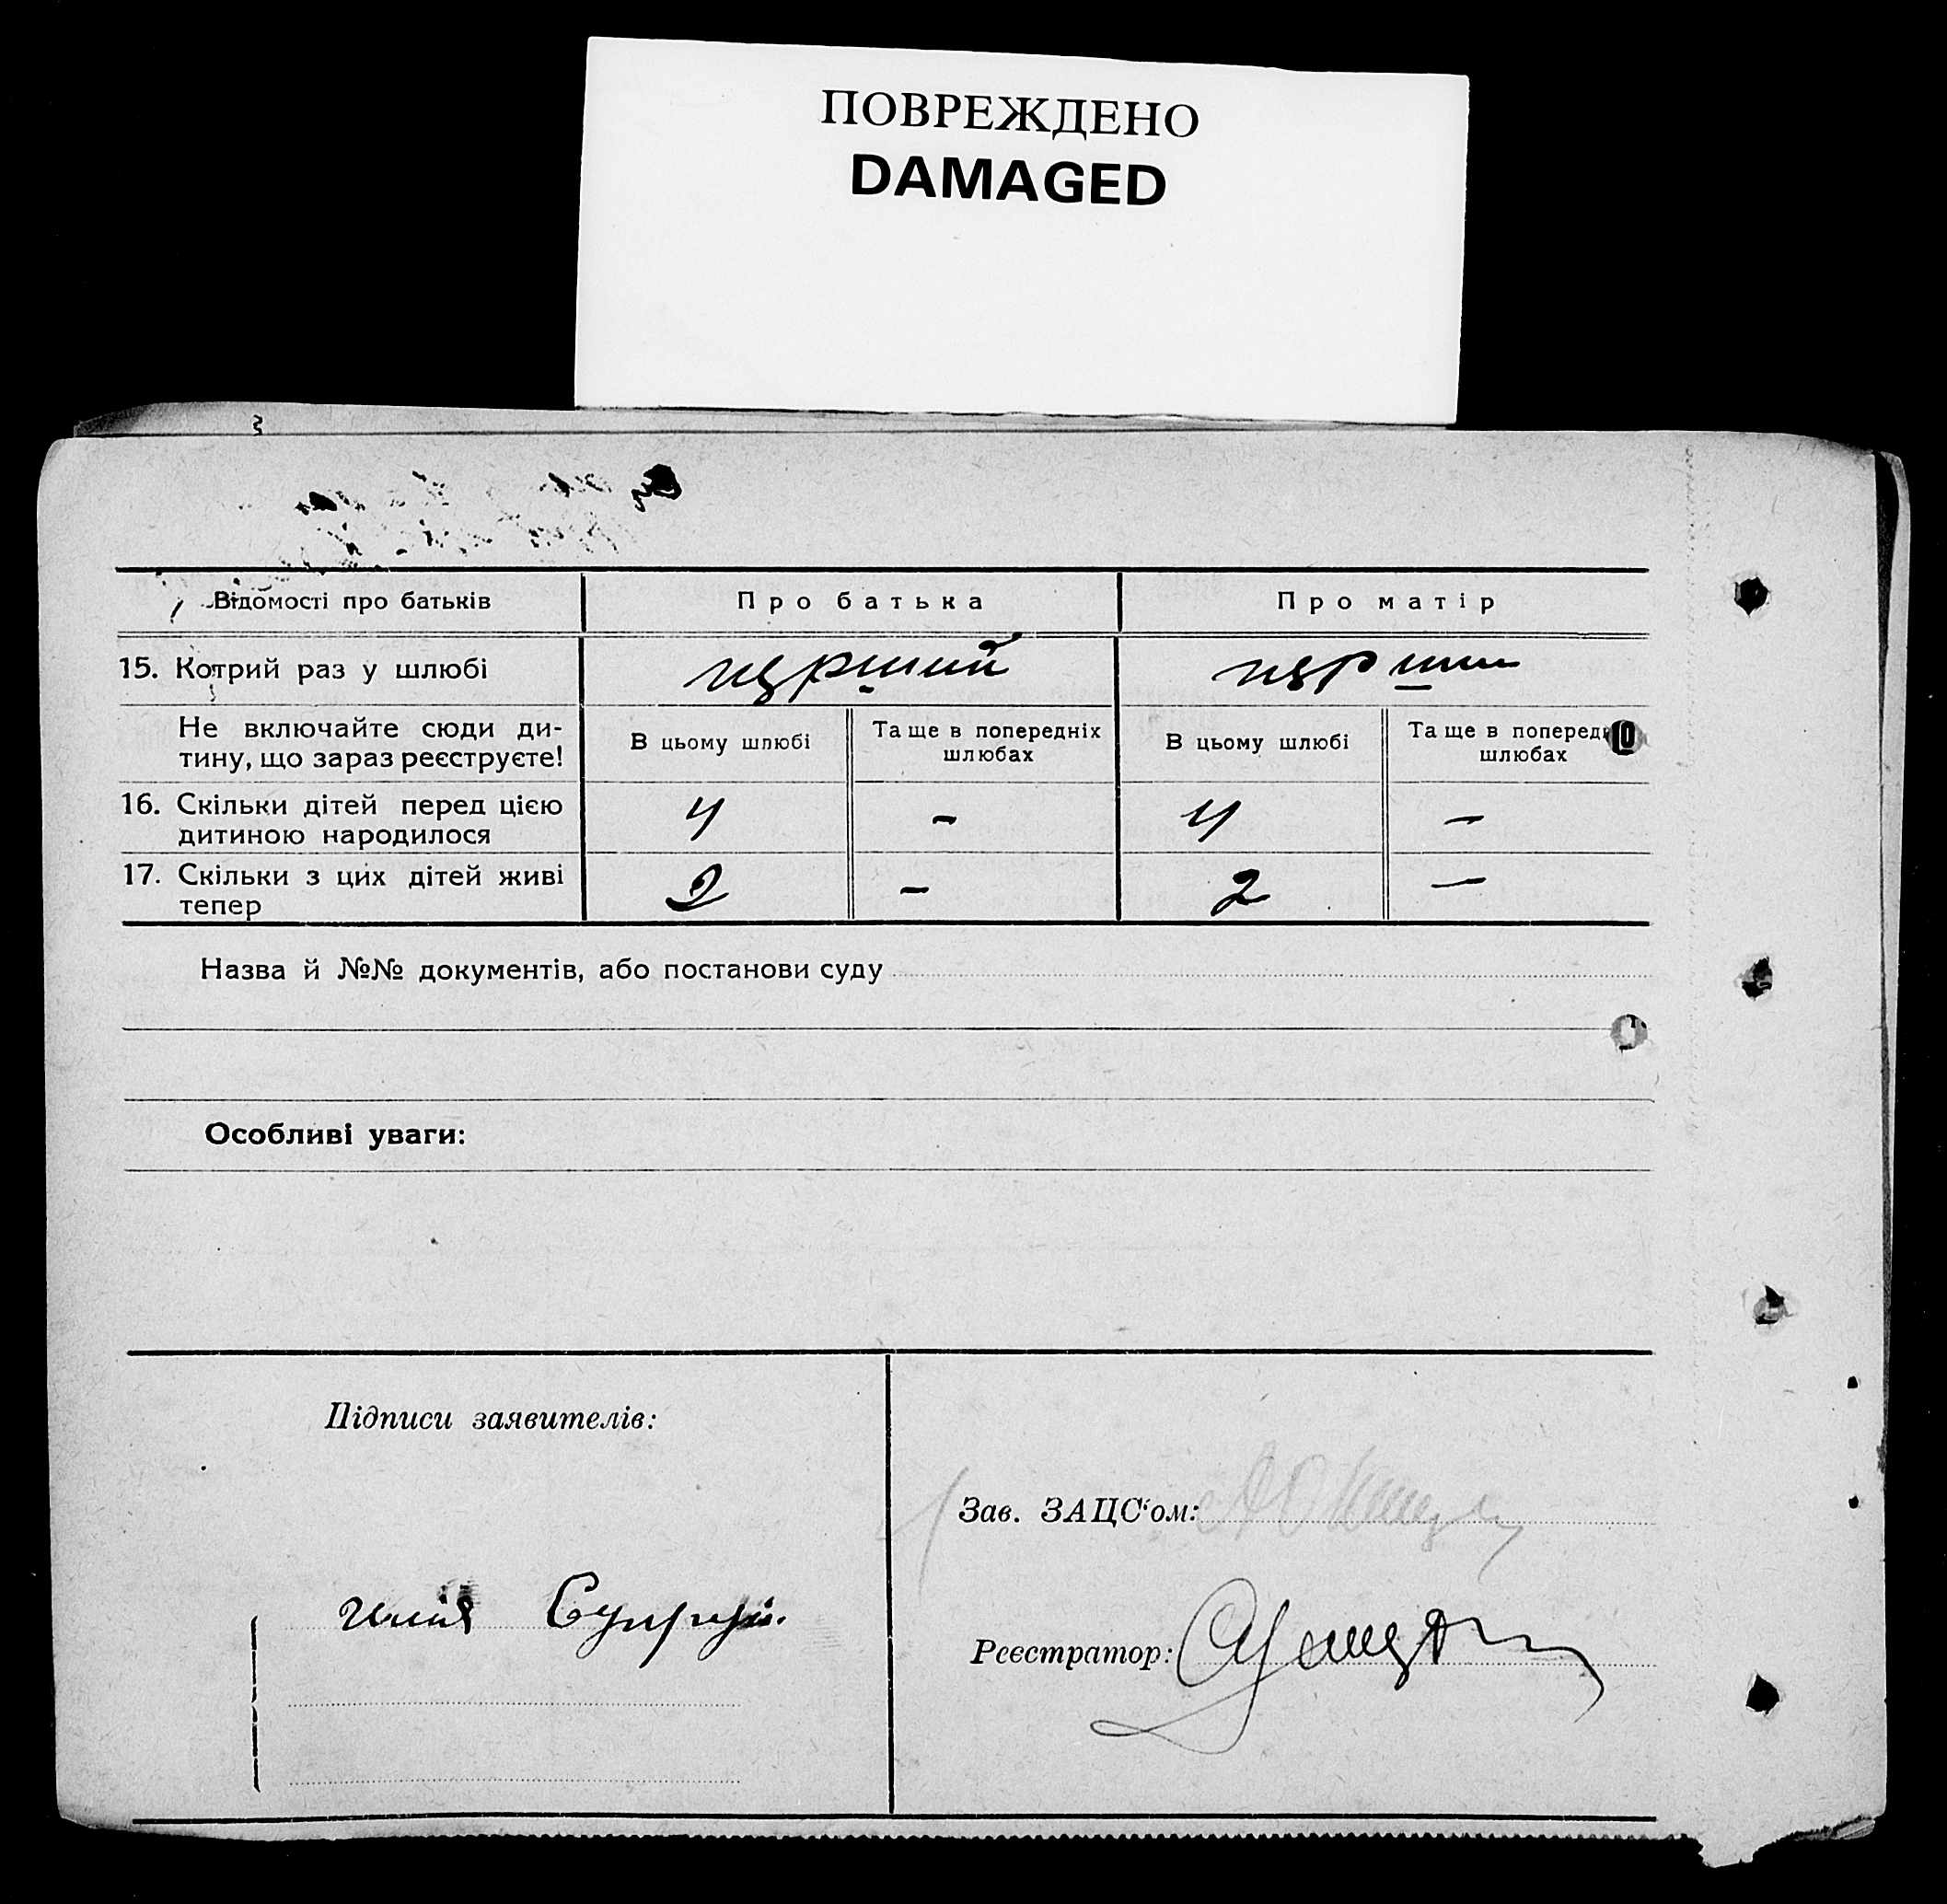 ПОВРЕЖДЕНО
DAMAGED
Відомості про батьків
Про батька
Про матір
15. Котрий раз у шлюбі
перший
перший
Не включайте сюди ди-
тину, що зараз реєструєте!
В цьому шлюбі
Та ще в попередніх
шлюбах
В цьому шлюбі
Та ще в
шлюбах
16. Скільки дітей перед цією
дитиною народилося
4
-
4
-
17. Скільки з цих дітей живі
тепер
2
-
2
-
Назва й №№ документів, або постанови суду
Особливі уваги:
Підписи заявителів:
Зав. ЗАЦС'ом:
Реєстратор: